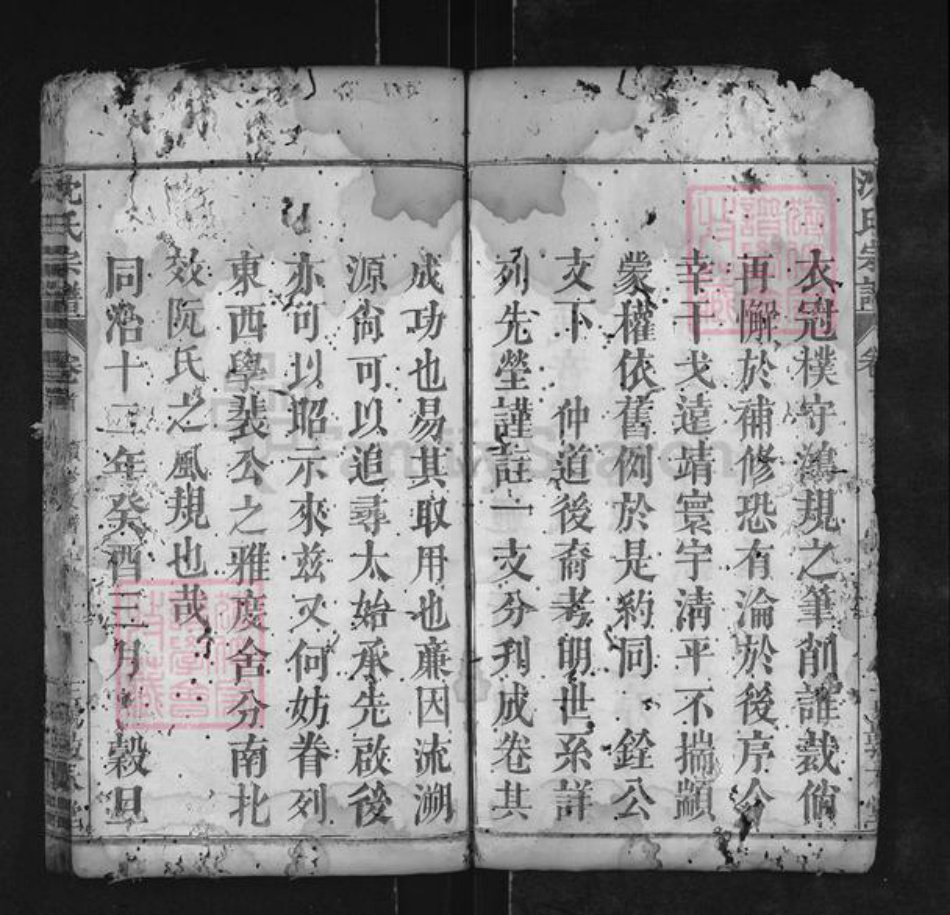 衣冠樸守鴻規之筆削誰裁倘
再懈於補修恐有淪於後序今
幸干戈遠靖寰宇淸平不揣顓
蒙權依舊例於是約同 銓公
支下 仲道後裔考明世系詳
列先塋謹註一支分刋成卷其
成功也易其取用也亷因流溯
源尙可以追尋太始承先啟後
亦可以昭示來兹又何妨眷列
東西學裴公之雅度舍分南北
效阮氏之風規也哉
同治十二年癸酉三月 穀旦
沈氏宗譜
卷首
沈氏宗譜
卷
FamilySearch